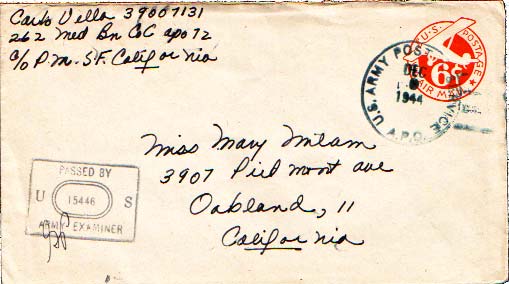 Carlo Vella 39007131
262 Med Bn Co C apo 72
c/o P.M. S.F. California
U.S. POSTAGE
6¢
AIR MAIL
U.S. ARMY POSTAL SERVICE
DEC
1944
A.P.O.
Miss Mary Milam
3907 Piedmont ave
Oakland, 11
California
PASSED BY
U 15446 S
ARMY EXAMINER